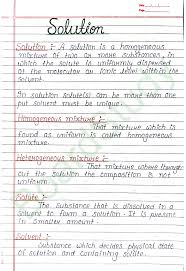 Solution
Solution :- A solution is a homogeneous
mixture of two or more substances, in
which the solute is uniformly dispersed
at the molecular or Ionic level within the
solvent.
In solution solute(s) can be more than one
put solvent must be unique.
Homogeneous mixture :-
That mixture which is
found as uniform is called homogeneous
mixture.
Heterogeneous mixture :-
That mixture where through
out the solution the composition is not
uniform.
Solute :-
The Substance that is dissolved in a
solvent to form a solution. It is present
in Smaller amount.
Solvent :-
Substance which decides physical state
of solution and containing solute.